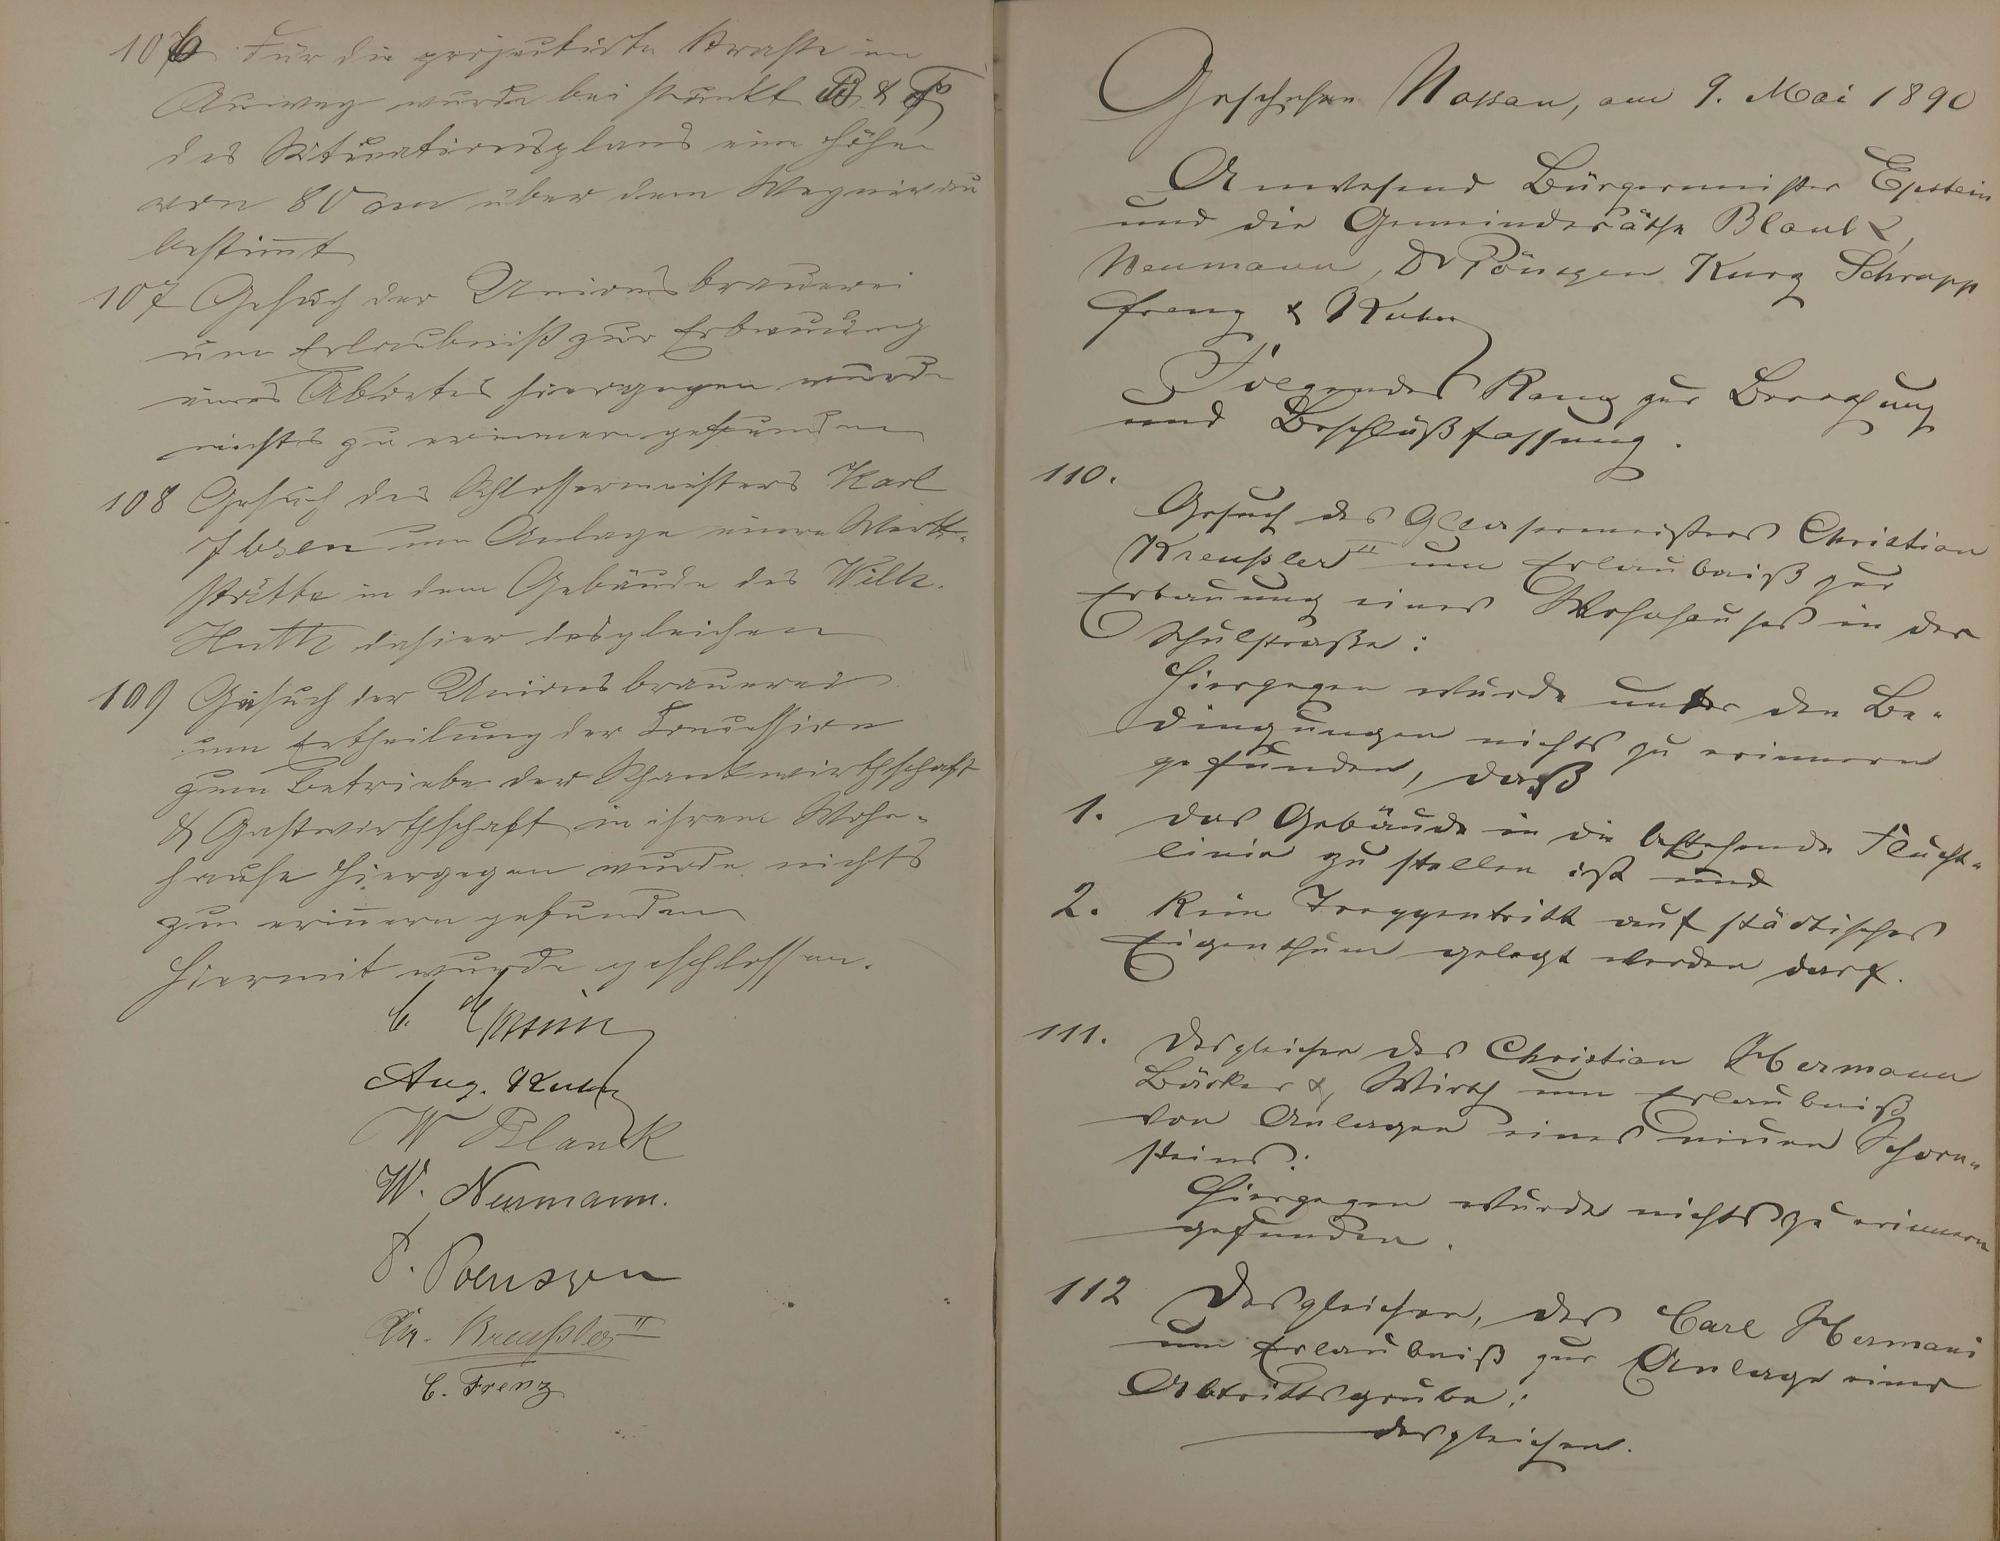 106 Für die projectirte Straße im
Auweg wurde bei Punkt B & F
des Situationsplans eine Höhe
von 80 cm über dem Wegniveau
bestimt
107 Gesuch der Unionsbrauerei
um Erlaubniß zur Erbauung
eines Abortes hiergegen wurde
nichts zu erinnern gefunden
108 Gesuch des Schlossermeisters Karl
Ibsen um Anlage einer Werk-
stätte in dem Gebäude des Wilh.
Huth dahier desgleichen
109 Gesuch der Unionsbrauerei
um Ertheilung der Concession
zum Betriebe der Schankwirthschaft
& Gastwirthschaft in ihrem Wohn-
hause hiergegen wurde nichts
zu erinern gefunden
Hiermit wurde geschlossen.
C. Epstein
Aug. Kuhn
W Blank
W. Neumann.
P. Poensgen
Chr. Kreußler II
C. Frenz
Geschehen Nassau, am 9. Mai 1890
Anwesend Bürgermeister Epstein
und die Gemeinderäthe Blank,
Neumann, Dr Pönsgen Kurz Schrupp
Frenz & Kuhn
Folgendes kam zur Berathung
und Beschlußfassung.
110.
Gesuch des Glasermeisters Christian
Kreußler II um Erlaubniß zur
Erbauung eines Wohnhauses in der
Schulstraße:
Hiergegen wurde unter den Be-
dingungen nichts zu erinnern
gefunden, daß
1. das Gebäude in die bestehende Flucht-
linie zu stellen ist und
2. kein Treppentritt auf städtisches
Eigenthum gelegt werden darf.
111. Desgleichen des Christian Hermann
Bäcker & Wirth um Erlaubniß
von Anlagen eines neuen Schorn-
steins:
Hiergegen wurde nichts zu erinnern
gefunden.
112 Desgleichen, des Carl Hermani
um Erlaubniß zur Anlage einer
Abtrittsgrube:
desgleichen.